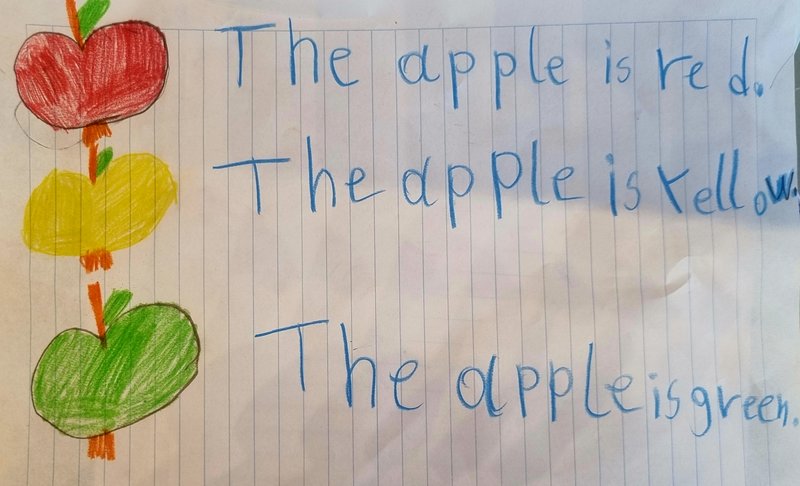 The apple is red.
The apple is rellow.
The apple is green.